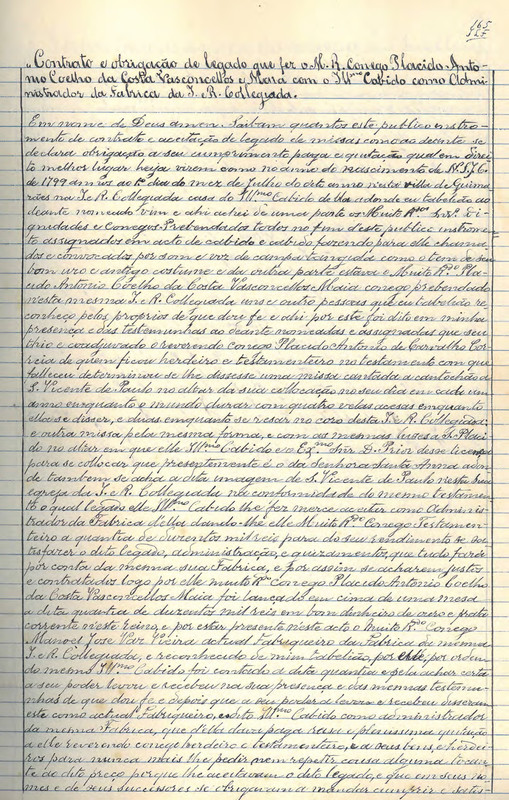 165
"Contrato e obrigação de legado que fez o M. R. Conego Placido Anto-
nio Coelho da Costa Vasconcellos e Maia com o Ill.mo Cabido como Admi-
nistrador da Fabrica da I. R. Collegiada.
Em nome de Deus amen. Saibam quantos este publico instro-
mento de contrato e aceitação de legado de missas como ao deante se
declara obrigação a seu cumprimento paga e quitação qual em direi-
to melhor lugar haja virem como no anno do nascimento de N. S. J. C.
de 1799 annos ao 1º dia do mez de Julho do dito anno nesta villa de Guima-
rães na I. R. Collegiada casa do Ill.mo Cabido de lla adonde eu tabelião ao
deante nomeado vim e ahi achei de uma parte os Muito R.dos Snr.s Di-
gnidades e Conegos Prebendados todos no fim deste publico instromen-
to assignados em acto de cabido e cabido fazendo para elle chama-
dos e convocados por som e voz de campa tangida como o tem de seu
bom uso e antigo costume e da outra parte estava o Muito R.do Pla-
cido Antonio Coelho da Costa Vasconcellos Maia conego prebendado
nesta mesma I. R. Collegiada uns e outro pessoas que eu tabelião re-
conheço pelos proprios de que dou fe e ahi por este foi dito em minha
presença e das testemunhas ao deante nomeadas e assignadas que seu
thio e coadjuvado o reverendo conego Placido Antonio de Carvalho Cor-
reia de quem ficou herdeiro e testamenteiro no testamento com que
falleceu determinou se lhe dissesse uma missa cantada a cantochão a
S. Vicente de Paulo no altar da sua collocação no seu dia em cada um
anno enquanto o mundo durar com quatro velas acesas emquanto
ella se disser, e duas emquanto se resar no coro desta I. R. Collegiada
e outra missa pela mesma forma, e com as mesmas luses a S. Placi-
do no altar em que elle Ill.mo Cabido e o Ex.mo Snr. D. Prior desse licença
para se collocar que presentemente é o da Senhora Santa Anna adon-
de tambem se acha a dita imagem de S. Vicente de Paulo nesta sua
egreja da I. R. Collegiada na conformidade do mesmo testamen-
to o qual legado elle Ill.mo Cabido lhe fez merce aceitar como Adminis-
trador da Fabrica della dando-lhe elle Muito R.do Conego Testamen-
teiro a quantia de duzentos mil reis para do seu rendimento se sa-
tisfazer o dito legado, administração, e guizamento, que tudo fará
por conta da mesma sua Fabrica, e por assim se acharem justos
e contratados logo por elle muito R.do Conego Placido Antonio Coelho
da Costa Vasconcellos Maia foi lançado em cima de uma mesa
a dita quantia de duzentos mil reis em bom dinheiro de ouro e prata
corrente neste reino, e por estar presente neste acto o Muito R.do Conego
Manoel José Vaz Vieira actual Fabriqueiro da Fabrica da mesma
I. R. Collegiada, e reconhecido de mim tabelião, por este, por ordem
do mesmo Ill.mo Cabido foi contado a dita quantia e pela achar certa
a seu poder levou e recebeu na sua presença e das mesmas testemu-
nhas de que dou fe e depois que a seu poder a levou e recebeu disseram
este como actual Fabriqueiro, e o dito Ill.mo Cabido como administrador
da mesma Fabrica, que della dava paga rasa e plenissima quitação
a elle reverendo conego herdeiro e testamenteiro, e a seus bens, e herdei-
ros para nunca mais lhe pedir nem repetir cousa alguma tocan-
te do dito preço porque lhe aceitavam o dito legado, e que em seus no-
mes e de seus successores se obrigavam a mandar cumprir e satis-